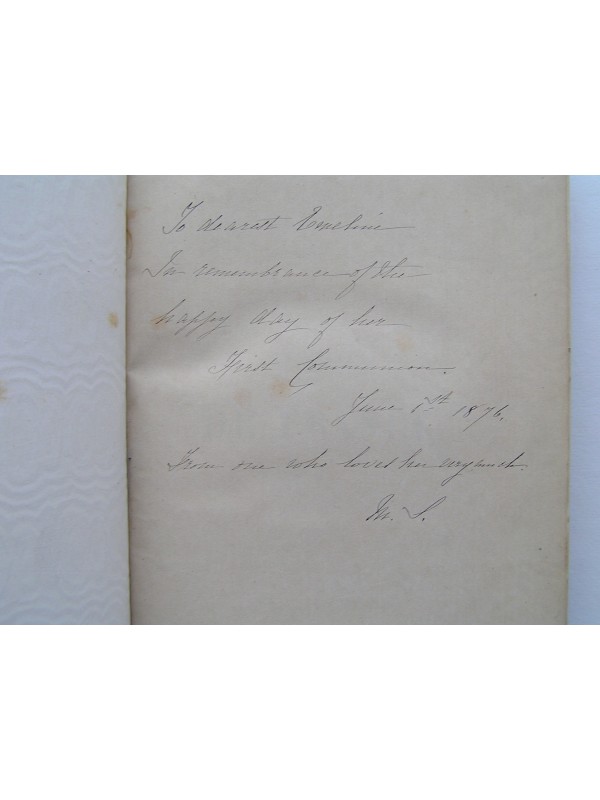 To dearest Emeline
In remembrance of the
happy day of her
First Communion.
June 1st 1876.
From one who loves her very much.
M. S.